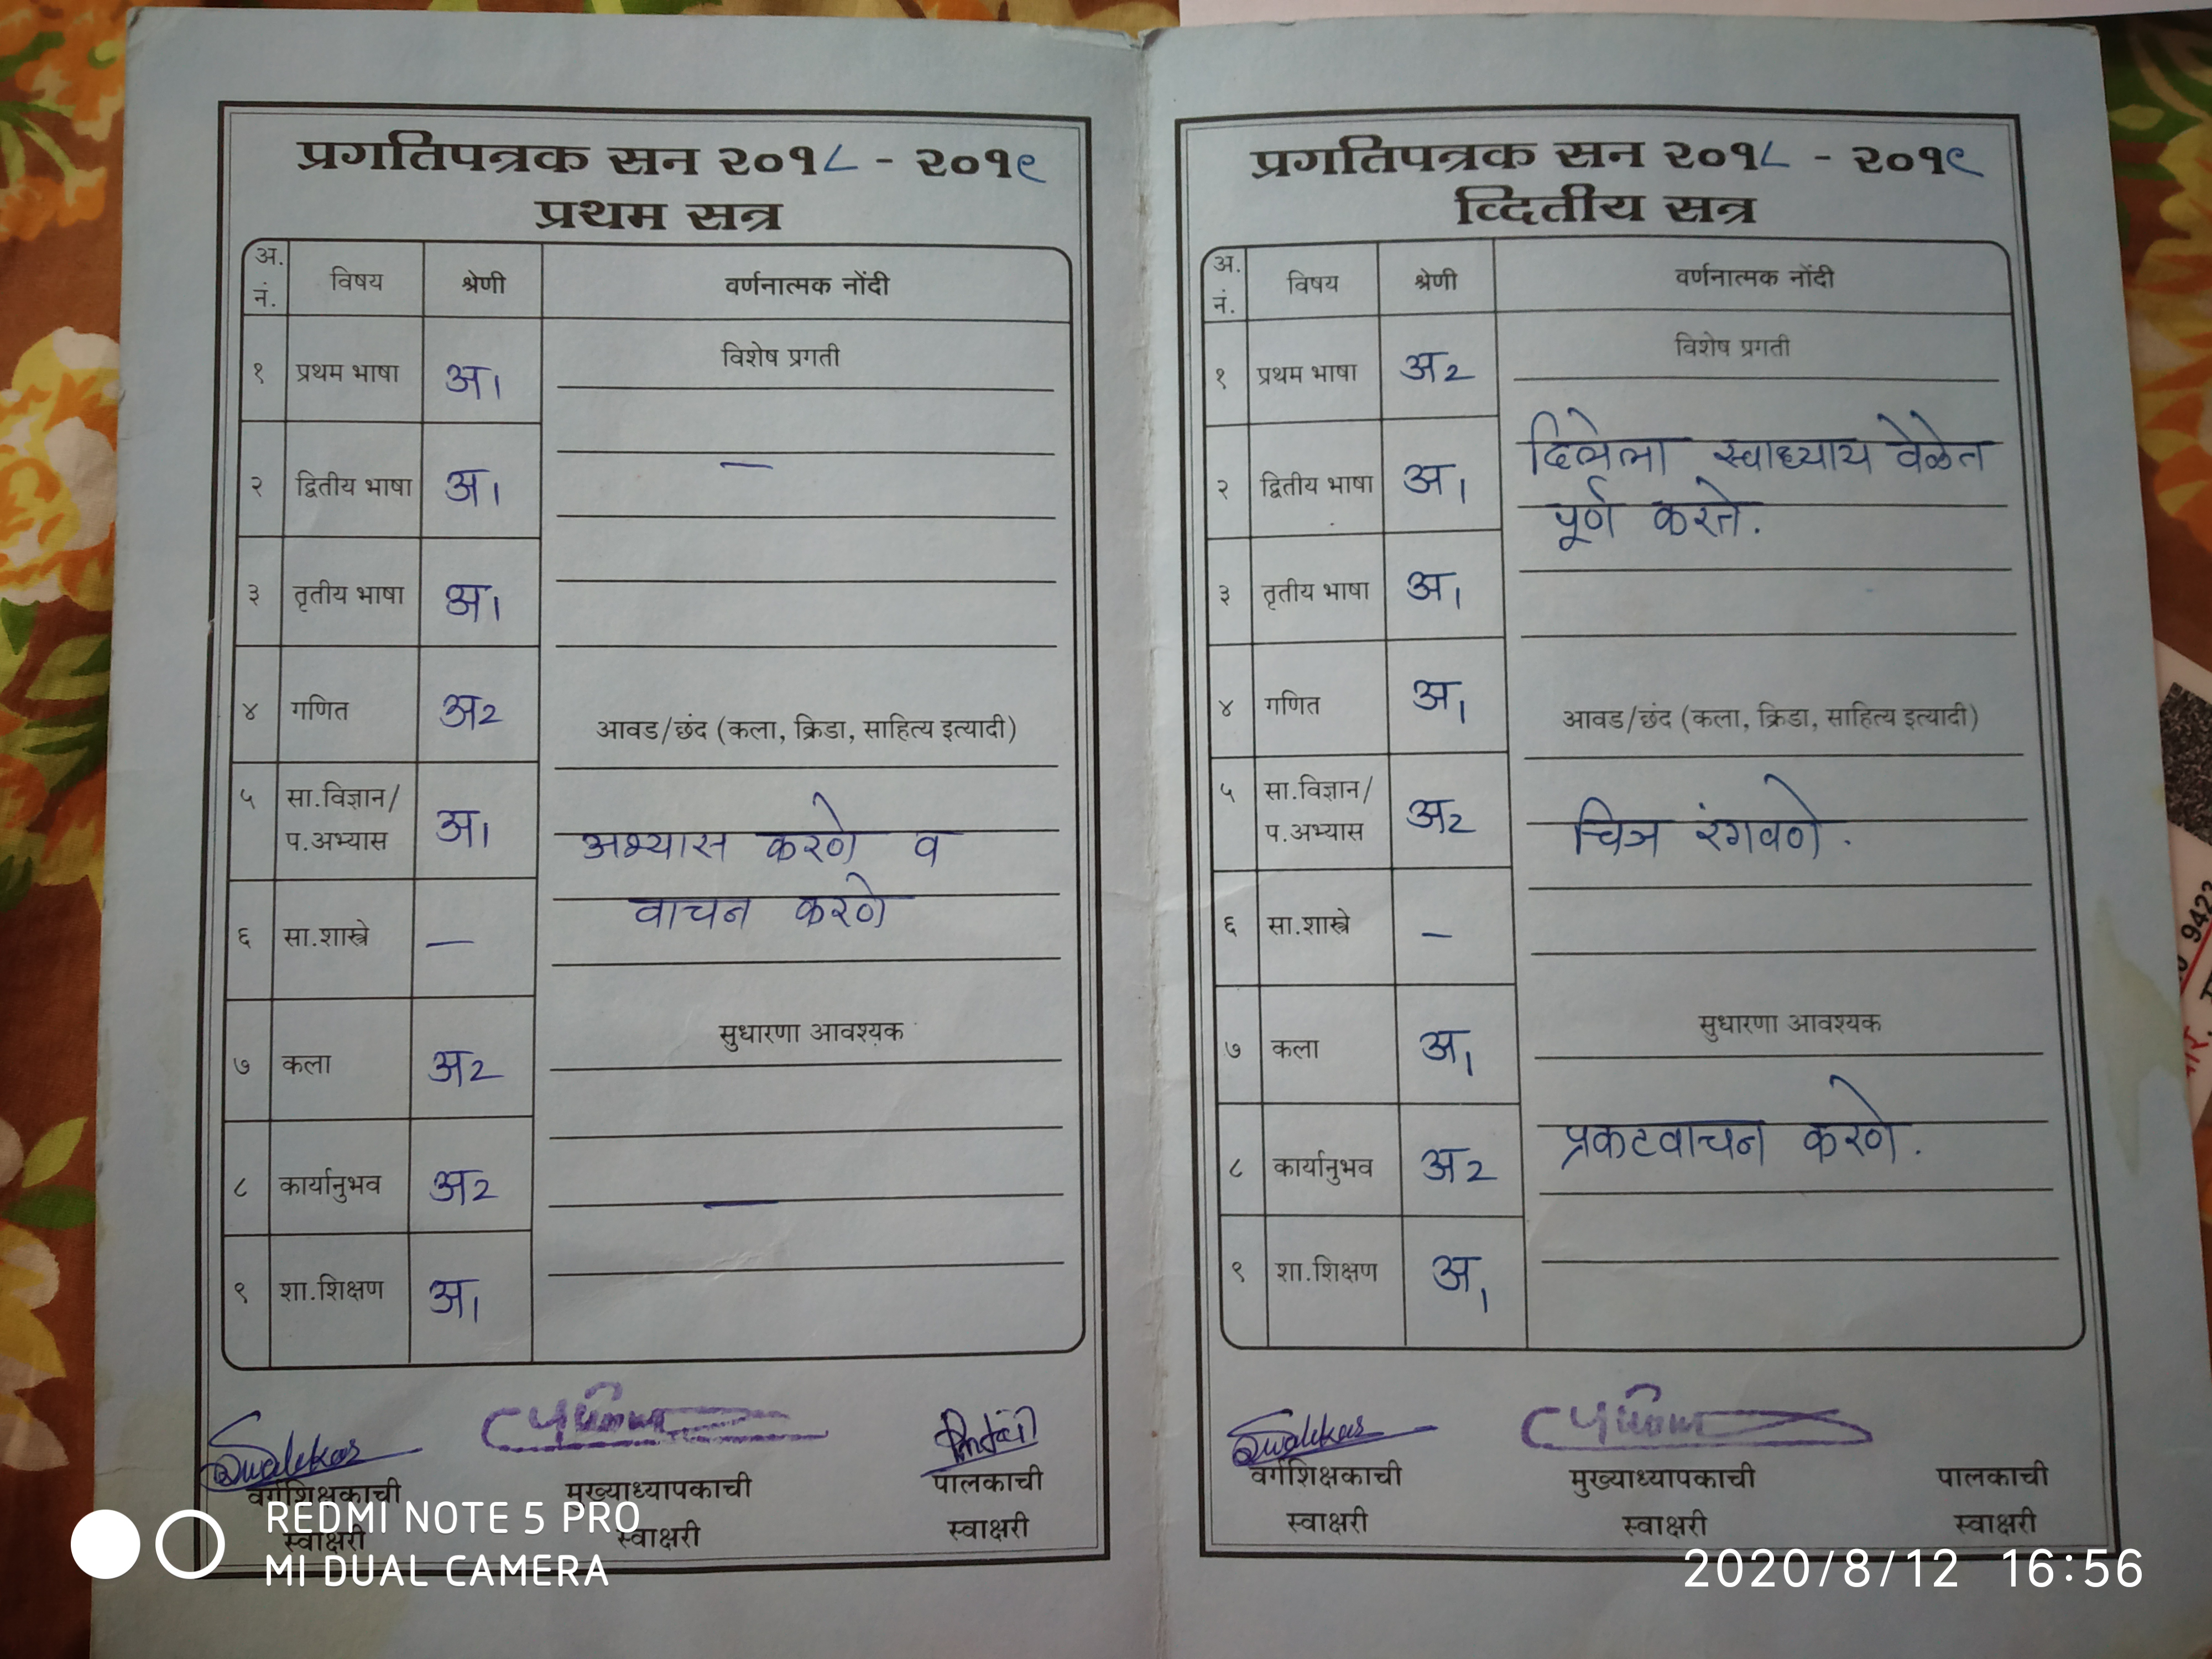 प्रगतिपत्रक सन २०१८ - २०१९
प्रथम सत्र
अ. नं. विषय श्रेणी वर्णनात्मक नोंदी
विशेष प्रगती
१ प्रथम भाषा अ1
—
२ द्वितीय भाषा अ1
३ तृतीय भाषा अ1
४ गणित अ2
आवड/छंद (कला, क्रिडा, साहित्य इत्यादी)
५ सा.विज्ञान/
प.अभ्यास अ1
अभ्यास करणे व
वाचन करणे
६ सा.शास्त्रे —
सुधारणा आवश्यक
७ कला अ2
८ कार्यानुभव अ2
—
९ शा.शिक्षण अ1
वर्गशिक्षकाची मुख्याध्यापकाची पालकाची
स्वाक्षरी स्वाक्षरी स्वाक्षरी
प्रगतिपत्रक सन २०१८ - २०१९
व्दितीय सत्र
अ. नं. विषय श्रेणी वर्णनात्मक नोंदी
विशेष प्रगती
१ प्रथम भाषा अ2
दिलेला स्वाध्याय वेळेत
२ द्वितीय भाषा अ1
पूर्ण करते.
३ तृतीय भाषा अ1
४ गणित अ1
आवड/छंद (कला, क्रिडा, साहित्य इत्यादी)
५ सा.विज्ञान/
प.अभ्यास अ2
चित्र रंगवणे.
६ सा.शास्त्रे —
सुधारणा आवश्यक
७ कला अ1
प्रकटवाचन करणे.
८ कार्यानुभव अ2
९ शा.शिक्षण अ1
वर्गशिक्षकाची मुख्याध्यापकाची पालकाची
स्वाक्षरी स्वाक्षरी स्वाक्षरी
REDMI NOTE 5 PRO
MI DUAL CAMERA
2020/8/12 16:56
9423